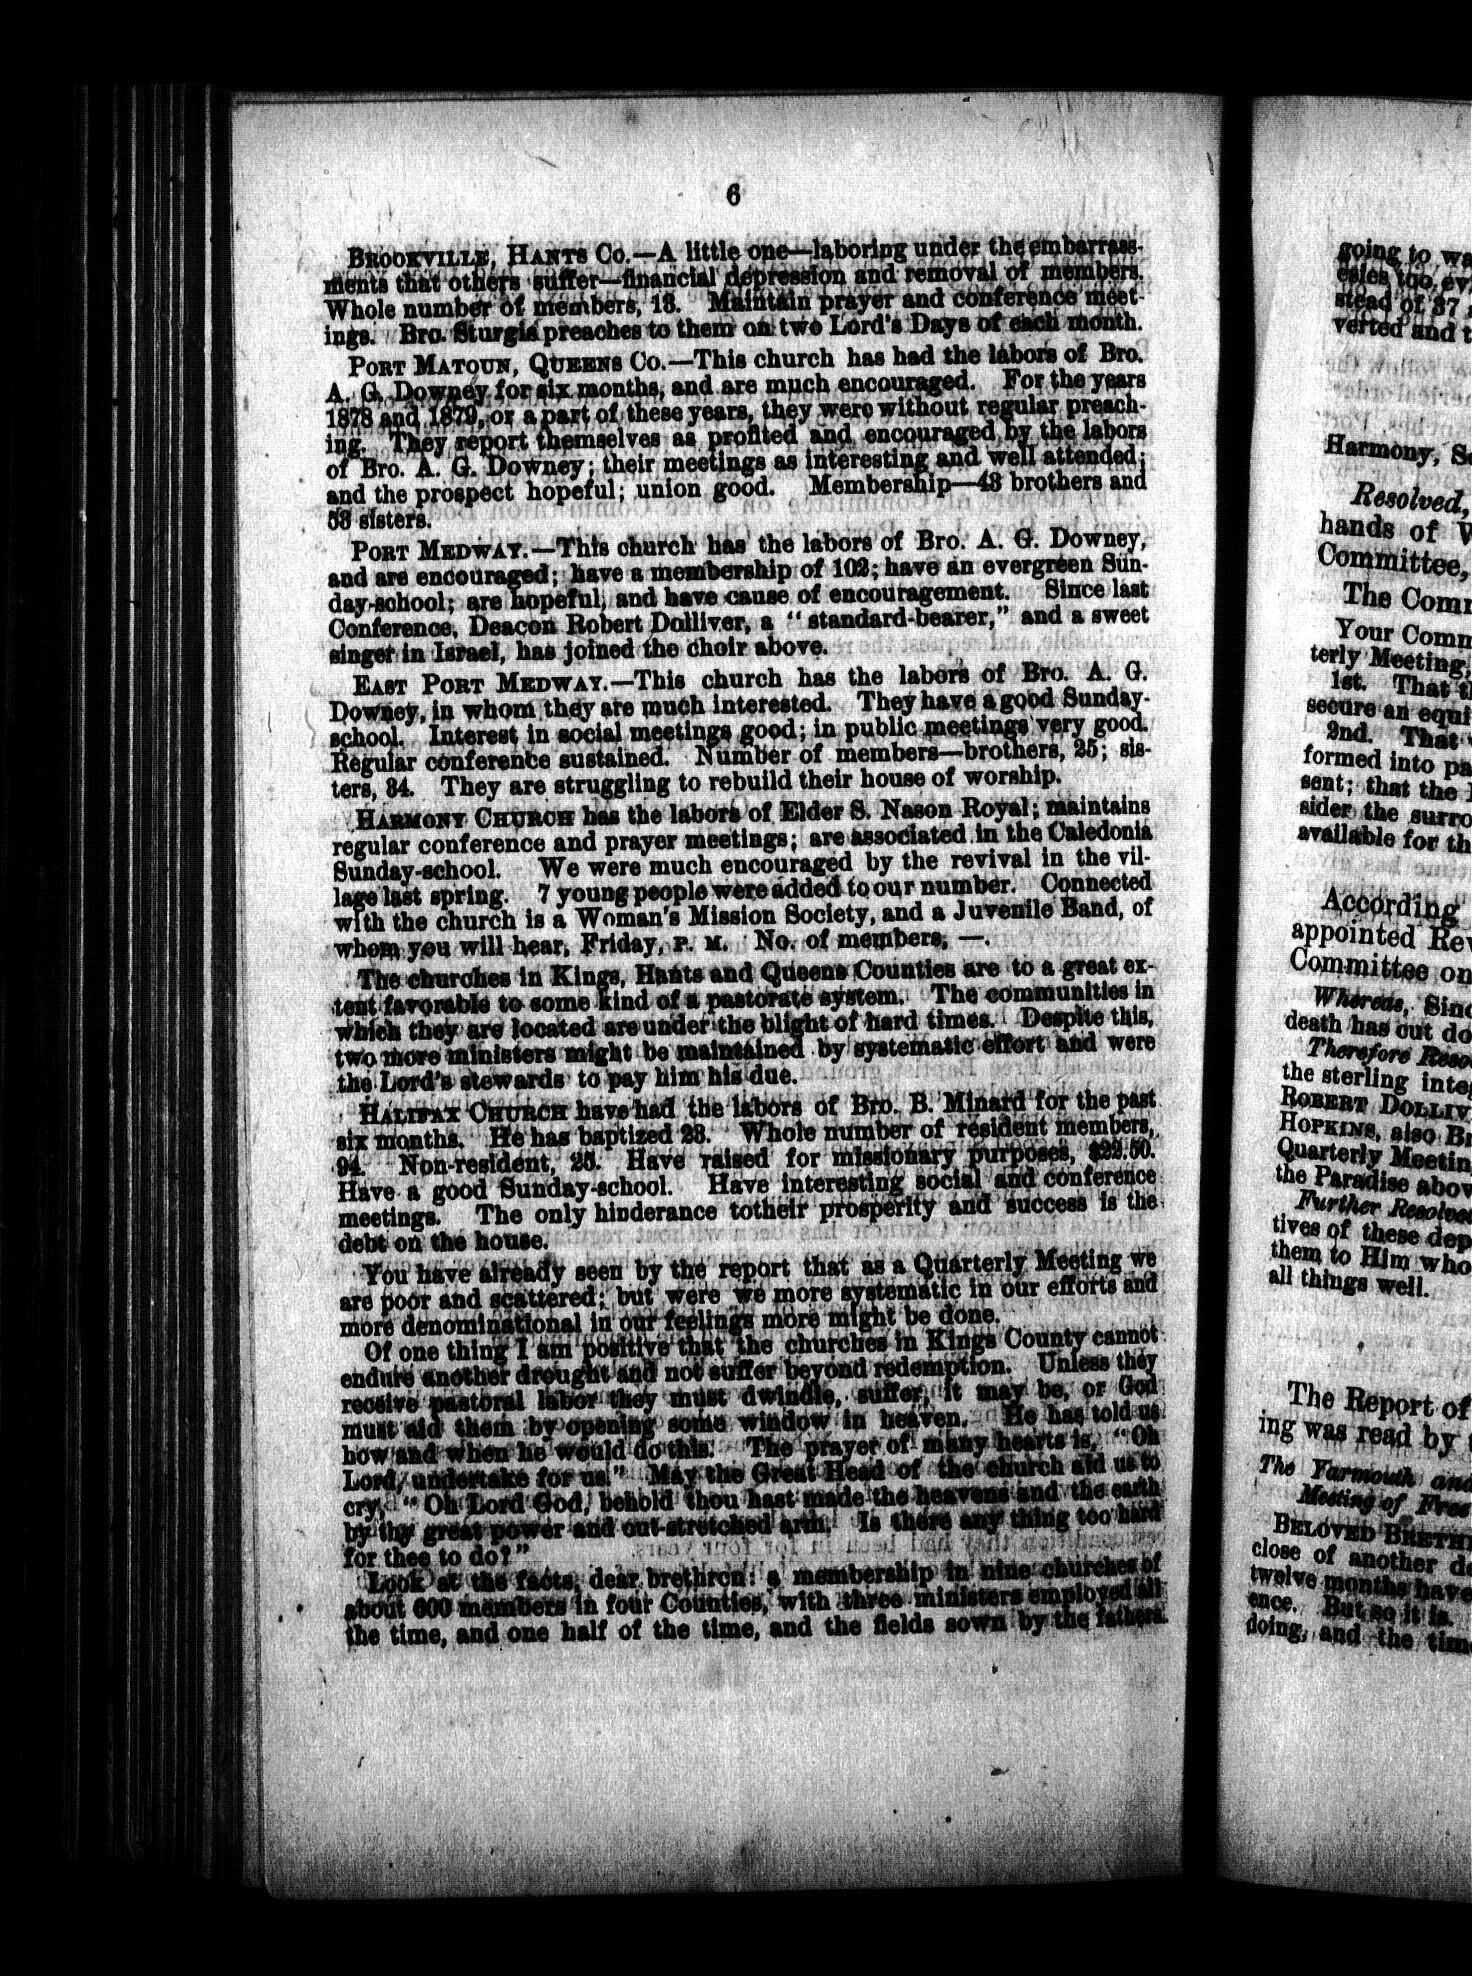 6
BROOKVILLE, HANTS Co.—A little one—laboring under the embarrass-
ments that others suffer—financial depression and removal of members.
Whole number of members, 13. Maintain prayer and conference meet-
ings. Bro. Sturgis preaches to them on two Lord's Days of each month.
PORT MATOUN, QUEENS Co.—This church has had the labors of Bro.
A. G. Downey for six months, and are much encouraged. For the years
1878 and 1879, or a part of these years, they were without regular preach-
ing. They report themselves as profited and encouraged by the labors
of Bro. A. G. Downey; their meetings as interesting and well attended;
and the prospect hopeful; union good. Membership—43 brothers and
53 sisters.
PORT MEDWAY.—This church has the labors of Bro. A. G. Downey,
and are encouraged; have a membership of 102; have an evergreen Sun-
day-school; are hopeful, and have cause of encouragement. Since last
Conference, Deacon Robert Dolliver, a "standard-bearer," and a sweet
singer in Israel, has joined the choir above.
EAST PORT MEDWAY.—This church has the labors of Bro. A. G.
Downey, in whom they are much interested. They have a good Sunday-
school. Interest in social meetings good; in public meetings very good.
Regular conference sustained. Number of members—brothers, 25; sis-
ters, 34. They are struggling to rebuild their house of worship.
HARMONY CHURCH has the labors of Elder S. Nason Royal; maintains
regular conference and prayer meetings; are associated in the Caledonia
Sunday-school. We were much encouraged by the revival in the vil-
lage last spring. 7 young people were added to our number. Connected
with the church is a Woman's Mission Society, and a Juvenile Band, of
whom you will hear, Friday, P. M. No. of members, —.
The churches in Kings, Hants and Queens Counties are to a great ex-
tent favorable to some kind of a pastorate system. The communities in
which they are located are under the blight of hard times. Despite this,
two more ministers might be maintained by systematic effort and were
the Lord's stewards to pay him his due.
HALIFAX CHURCH have had the labors of Bro. B. Minard for the past
six months. He has baptized 23. Whole number of resident members,
94. Non-resident, 25. Have raised for missionary purposes, $22.50.
Have a good Sunday-school. Have interesting social and conference
meetings. The only hinderance totheir prosperity and success is the
debt on the house.
You have already seen by the report that as a Quarterly Meeting we
are poor and scattered; but were we more systematic in our efforts and
more denominational in our feelings more might be done.
Of one thing I am positive that the churches in Kings County cannot
endure another drought and not suffer beyond redemption. Unless they
receive pastoral labor they must dwindle, suffer, it may be, or God
must aid them by opening some window in heaven. He has told us
how and when he would do this. The prayer of many hearts is, "Oh
Lord, undertake for us." May the Great Head of the church aid us to
cry, "Oh Lord God, behold thou hast made the heavens and the earth
by thy great power and out-stretched arm. Is there any thing too hard
for thee to do?"
Look at the facts, dear brethren: a membership in nine churches of
about 600 members in four Counties, with three ministers employed all
the time, and one half of the time, and the fields sown by the fathers
going to
too
stead of 37
verted and
Harmony,
Resolved,
hands of
Committee,
The
Your
terly Meeting,
1st. That
secure an
2nd. That
formed into
sent; that the
sider the
available for
According
appointed
Committee on
Whereas,
death has cut
Therefore
the sterling
ROBERT
HOPKINS, also
Quarterly
the Paradise
Further
tives of these
them to Him who
all things well.
The Report of
ing was read by
The Yarmouth and
Meeting of
BELOVED
close of another
twelve months have
ence. But so it is.
doing, and the